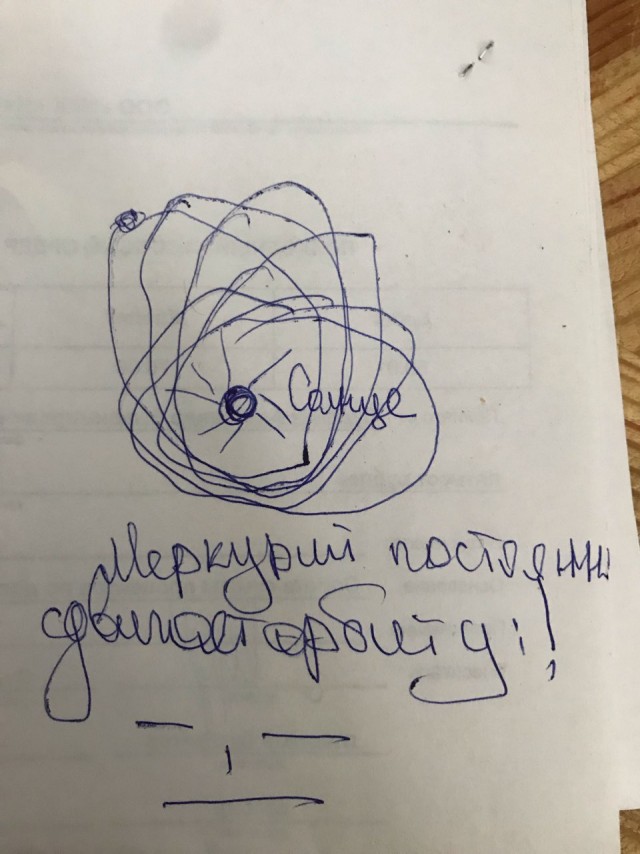 Солнце
Меркурий постоянно
сдвигает орбиту!